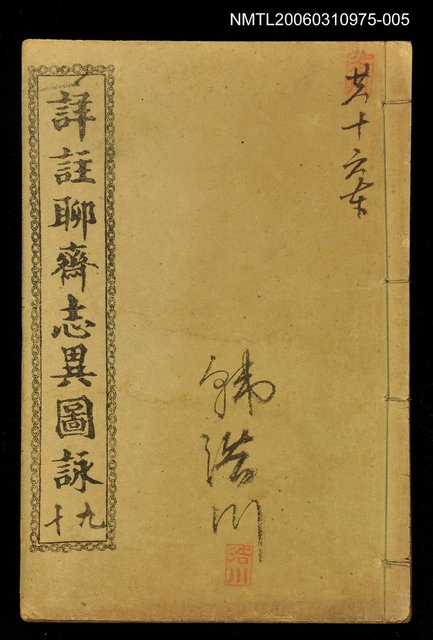 NMTL20060310975-005
共十六本
詳註聊齋志異圖詠
九
十
韓浩川
浩川